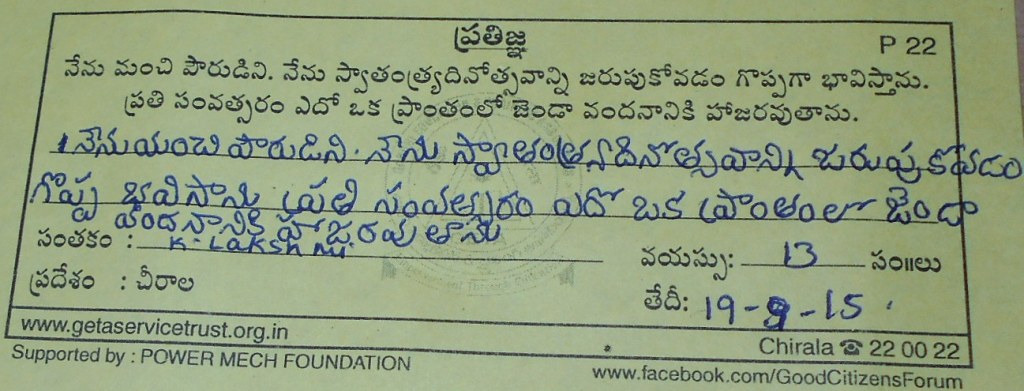 ప్రతిజ్ఞ
P 22
నేను మంచి పౌరుడిని. నేను స్వాతంత్ర్యదినోత్సవాన్ని జరుపుకోవడం గొప్పగా భావిస్తాను.
ప్రతి సంవత్సరం ఎదో ఒక ప్రాంతంలో జెండా వందనానికి హాజరవుతాను.
నేను మంచి పౌరుడిని. నేను స్వాతంత్ర్యదినోత్సవాన్ని జరుపుకోవడం
గొప్ప భవిసాను ప్రతి సంవత్సరం ఎదో ఒక ప్రాంతంలో జెండా
వందనానికి హాజరవుతాను
సంతకం : K. LAKSHMI
వయస్సు: 13 సం॥లు
ప్రదేశం : చీరాల
తేదీ: 19-9-15
www.getaservicetrust.org.in
Chirala ☎ 22 00 22
Supported by : POWER MECH FOUNDATION
www.facebook.com/GoodCitizensForum